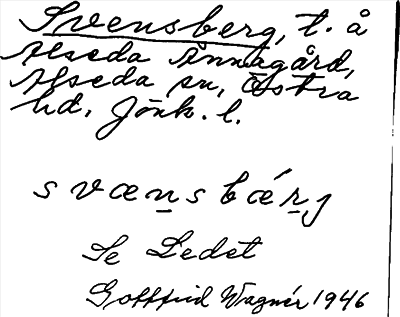 Svensberg, t. å
Alseda Annagård,
Alseda sn, Östra
hd, Jönk. l.
svænsbǽrj
Se Ledet
Gottfrid Wagnér 1946